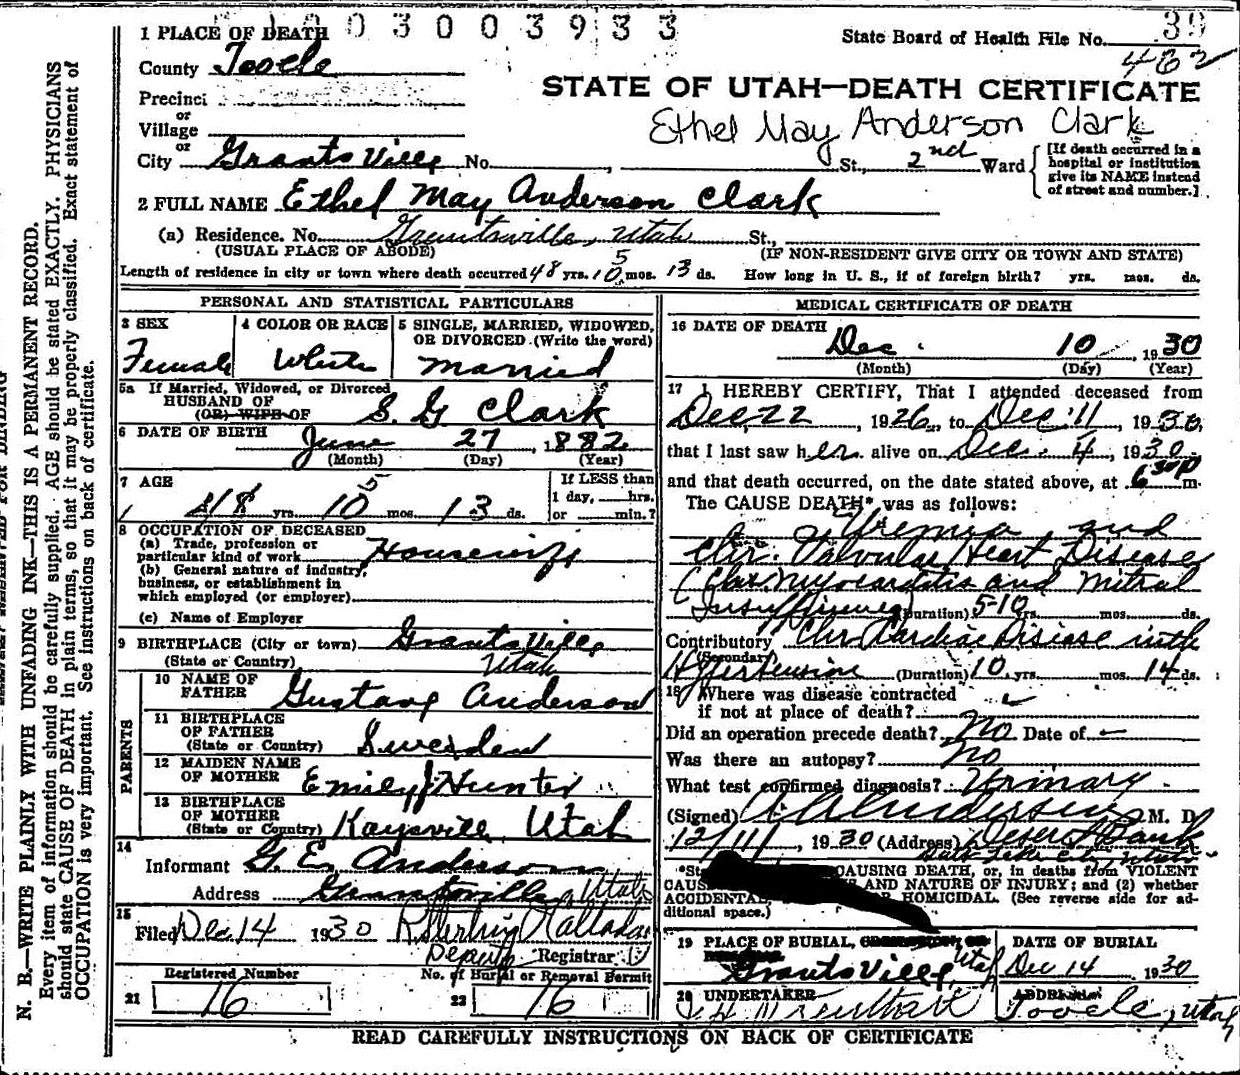 1 PLACE OF DEATH 0 3 0 0 3 9 3 3
State Board of Health File No. 39
482
County Tooele
STATE OF UTAH—DEATH CERTIFICATE
Precinct
or
Village
Ethel May Anderson Clark
or
City Grantsville No. , St., 2nd Ward
[If death occurred in a
hospital or institution
give its NAME instead
of street and number.]
2 FULL NAME Ethel May Anderson Clark
(a) Residence. No. Grantsville, Utah St.,
(USUAL PLACE OF ABODE) (IF NON-RESIDENT GIVE CITY OR TOWN AND STATE)
Length of residence in city or town where death occurred 48 yrs. 10 5 mos. 13 ds. How long in U. S., if of foreign birth? yrs. mos. ds.
PERSONAL AND STATISTICAL PARTICULARS
3 SEX
Female
4 COLOR OR RACE
White
5 SINGLE, MARRIED, WIDOWED,
OR DIVORCED (Write the word)
Married
5a If Married, Widowed, or Divorced
HUSBAND OF
(OR) WIFE OF S. G Clark
6 DATE OF BIRTH June 27, 1882
(Month) (Day) (Year)
7 AGE
48 yrs. 10 5 mos. 13 ds.
If LESS than
1 day, hrs.
or min.?
8 OCCUPATION OF DECEASED
(a) Trade, profession or
particular kind of work Housewife
(b) General nature of industry,
business, or establishment in
which employed (or employer)
(c) Name of Employer
9 BIRTHPLACE (City or town) Grantsville
(State or Country) Utah
PARENTS
10 NAME OF
FATHER Gustave Anderson
11 BIRTHPLACE
OF FATHER
(State or Country) Sweden
12 MAIDEN NAME
OF MOTHER Emily J Hunter
13 BIRTHPLACE
OF MOTHER
(State or Country) Kaysville, Utah
14
Informant G. E. Anderson
Address Grantsville, Utah
15
Filed Dec 14 1930
Deputy Registrar
Registered Number No. of Burial or Removal Permit
21 16 22 16
MEDICAL CERTIFICATE OF DEATH
16 DATE OF DEATH
Dec. 10, 1930
(Month) (Day) (Year)
17 I HEREBY CERTIFY, That I attended deceased from
Dec 22, 1926, to Dec 11 1930,
that I last saw her alive on Dec. 4, 1930
and that death occurred, on the date stated above, at 6 30 p m.
The CAUSE DEATH* was as follows:
Uremia and
Chr. Valvular Heart Disease
(Chr. Myocarditis and Mitral
Insufficiency (Duration) 5-10 yrs. mos. ds.
Contributory Chr Cardiac Disease with
(Secondary)
Hypertension (Duration) 10 yrs. mos. 14 ds.
18 Where was disease contracted
if not at place of death?
Did an operation precede death? No Date of —
Was there an autopsy? No
What test confirmed diagnosis? Urinary
(Signed) Andersen M. D.
12/11, 1930 (Address) Deseret Bank
Salt Lake City, Utah
*St CAUSING DEATH, or, in deaths from VIOLENT
CAUS AND NATURE OF INJURY; and (2) whether
ACCIDENTAL, OR HOMICIDAL. (See reverse side for ad-
ditional space.)
19 PLACE OF BURIAL,
Grantsville, Utah
DATE OF BURIAL
Dec 14 1930
20 UNDERTAKER
ADDRESS
Tooele, Utah
READ CAREFULLY INSTRUCTIONS ON BACK OF CERTIFICATE
N. B.—WRITE PLAINLY WITH UNFADING INK—THIS IS A PERMANENT RECORD.
Every item of information should be carefully supplied. AGE should be stated EXACTLY. PHYSICIANS
should state CAUSE OF DEATH in plain terms, so that it may be properly classified. Exact statement of
OCCUPATION is very important. See instructions on back of certificate.